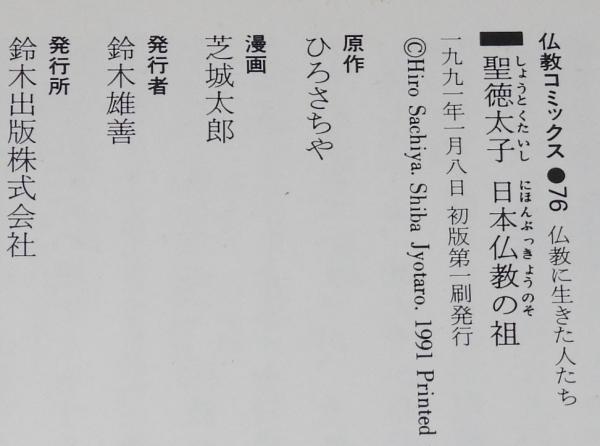 仏教コミックス●76 仏教に生きた人たち
しょうとくたいし にほんぶっきょうのそ
聖徳太子 日本仏教の祖
一九九一年一月八日 初版第一刷発行
©Hiro Sachiya. Shiba Jyotaro. 1991 Printed
原作
ひろさちや
漫画
芝城太郎
発行者
鈴木雄善
発行所
鈴木出版株式会社